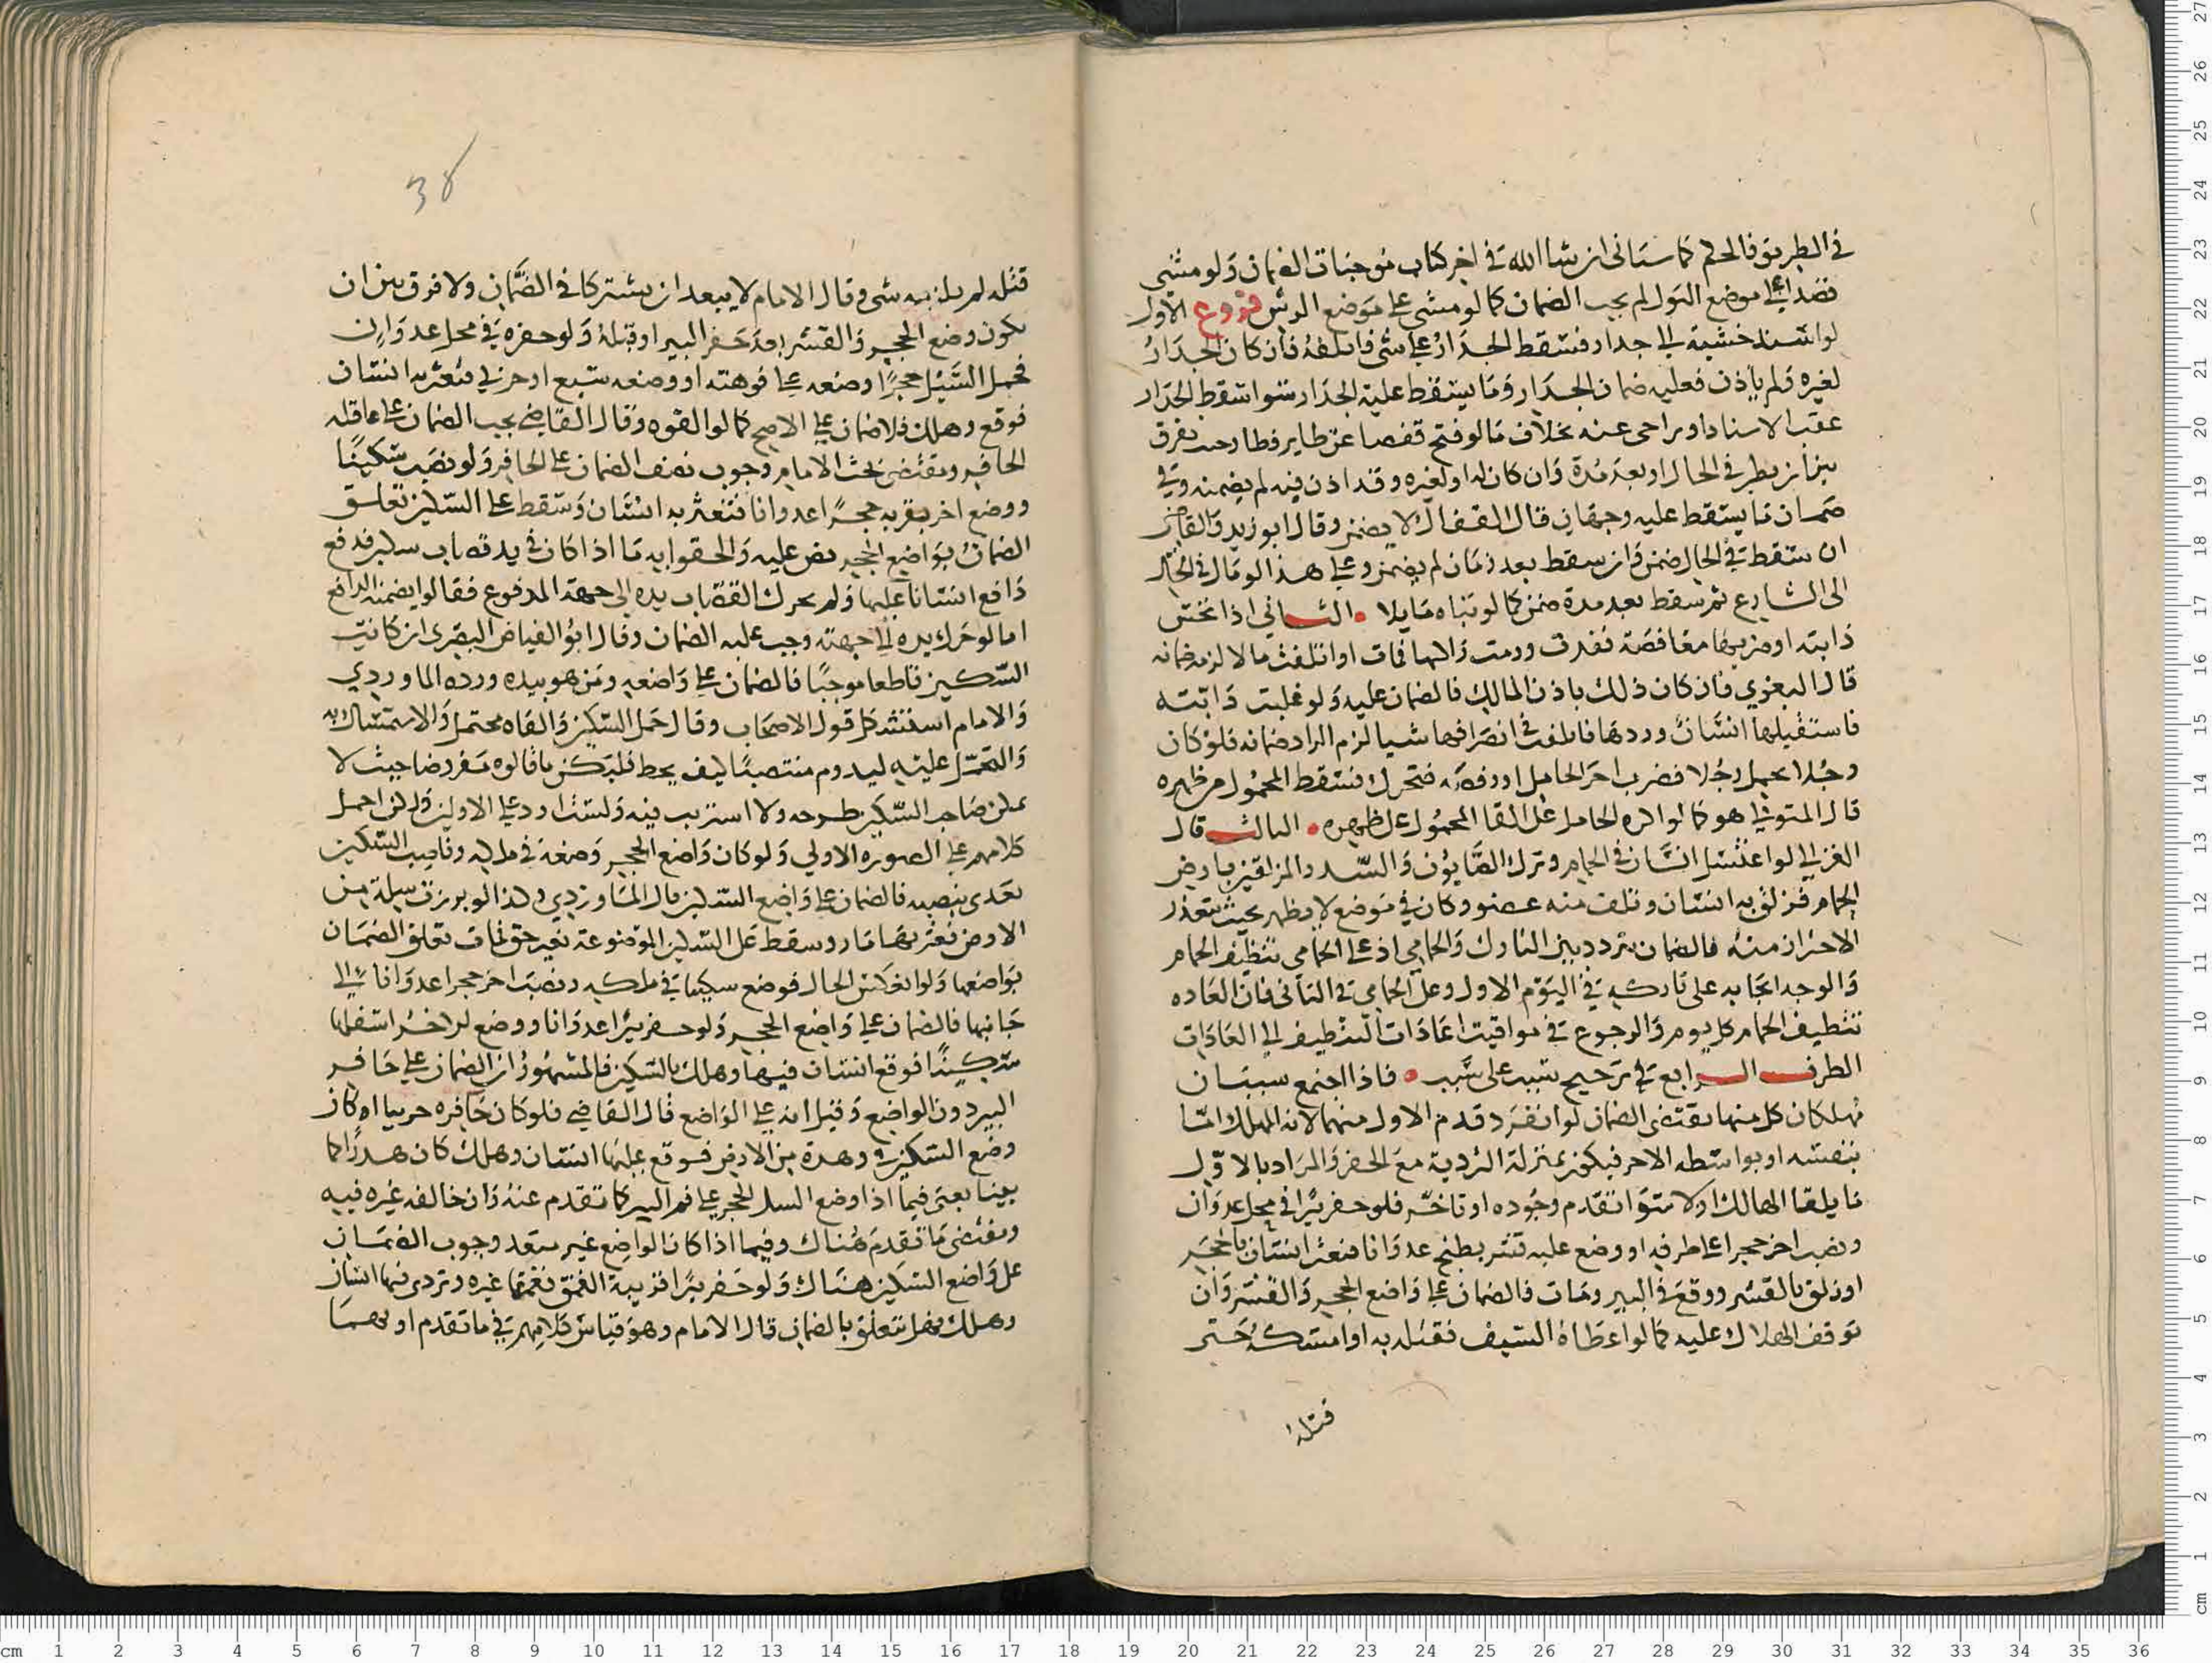 في الطريق فالحكم كما سياتي ان شا الله في اخر كتاب موجبات الضمان ولو مشى
قصدا على موضع البول لم يجب الضمان كما لو مشى على موضع الرش فروع الاول
لو اسند خشبة الى جدار فسقط الجدار على شي فاتلفه فان كان الجدار
لغيره ولم ياذن فعليه ضمان الجدار وما يسقط عليه الجدار سوا سقط الجدار
عقب الاسناد او تراخى عنه بخلاف ما لو فتح قفصا عن طاير فطار حيث يفرق
بين ان يطير في الحال او بعد مدة وان كان له او لغيره وقد اذن فيه لم يضمنه وفي
ضمان ما يسقط عليه وجهان قال القفال لا يضمن وقال ابو زيد والقاضي
ان سقط في الحال ضمن وان سقط بعد زمان لم يضمن وعلى هذا لو مال في الحال
الى الشارع ثم سقط بعد مدة ضمن كما لو بناه مايلا الثاني اذا نخس
دابته او ضربها مغافصة فقفزت ورمت راكبها فمات او اتلفت مالا لزمه ضمانه
قال البغوي فان كان ذلك باذن المالك فالضمان عليه ولو غلبت دابته
فاستقبلها انسان وردها فاتلفت في انصرافها شيا لزم الراد ضمانه فلو كان
رجلا يحمل رجلا فضرب اخر الحامل او رفصه فتحرك فسقط المحمول من ظهره
قال المتولي هو كما لو اكره الحامل على القا المحمول عن ظهره الثالث قال
الغزالي لو اغتسل انسان في الحمام وترك الصابون والسدر المزلقين بارض
الحمام فزلق به انسان وتلف منه عضو وكان في موضع لا يظهر بحيث يتعذر
الاحتراز منه فالضمان يتردد بين التارك والحمامي اذ على الحمامي تنظيف الحمام
والوجه ايجابه على تاركه في اليوم الاول وعلى الحمامي في الثاني فان العاده
تنظيف الحمام كل يوم والرجوع في مواقيت اعادات التنظيف الى العادات
الطرف الرابع في ترجيح سبب على سبب فاذا اجتمع سببان
مهلكان كل منهما يقتضى الضمان لو انفرد قدم الاول منهما لانه المهلك اما
بنفسه او بواسطه الاخر فيكون بمنزلة التردية مع الحفر والمراد بالاول
ما يلقا الهالك اولا سوا تقدم وجوده او تاخر فلو حفر بيرا في محل عدوان
ونصب اخر حجرا على طرفه او وضع عليه قشر بطيخ عدوانا فتعثر انسان بالحجر
او زلق بالقشر ووقع في البير ومات فالضمان على واضع الحجر والقشر وان
توقف الهلاك عليه كما لو اعطاه السيف فقتله به او امسكه حتى
قتله
38
قتله لم يلزمه شى وقال الامام لا يبعد ان يشتركا في الضمان ولا فرق بين ان
يكون وضع الحجر والقشر بعد حفر البير او قبله ولو حفره في محل عدوان
فحمل السيل حجرا وضعه على فوهته او وضعه سبع او حربي فتعثر به انسان
فوقع وهلك فلا ضمان على الاصح كما لو القوه وقال القاضي يجب الضمان على عاقلة
الحافر ومقتضى بحث الامام وجوب نصف الضمان على الحافر ولو نصب سكينا
ووضع اخر بقربه حجرا عدوانا فتعثر به انسان وسقط على السكين تعلق
الضمان بواضع الحجر نص عليه والحقوا به ما اذا كان في يد قصاب سكين فدفع
دافع انسانا عليها ولم يحرك القصاب يده الى جهة المدفوع فقالوا يضمنه الدافع
اما لو حرك يده الى جهته وجب عليه الضمان وقال ابو الفياض البصرى ان كانت
السكين قاطعا موجبا فالضمان على واضعه ومن هو بيده ورده الماوردي
والامام استشكل قول الاصحاب وقال حمل السكين والقاه محتمل والاستمساك به
والتحمل عليه ليدوم منتصبا كيف يحط فليكن ما قالوه مفروضا حيث لا
يمكن صاحب السكين طرحه ولا استريب فيه ولست اورد على الاولين ولكن احمل
كلامهم على الصوره الاولي ولو كان واضع الحجر وضعه في ملكه وناصب السكين
تعدى بنصبه فالضمان على واضع السكين قال الماوردي وكذا لو برزت بقلة من
الارض فعثر بها مار وسقط على السكين الموضوعة بغير حق فمات تعلق الضمان
بواضعها ولو انعكس الحال فوضع سكينا في ملكه ونصب اخر حجرا عدوانا الى
جانبها فالضمان على واضع الحجر ولو حفر بيرا عدوانا ووضع اخر اسفلها
سكينا فوقع انسان فيها وهلك بالسكين فالمشهور ان الضمان على حافر
البير دون الواضع وقيل انه على الواضع قال القاضي فلو كان حافره حربيا او كان
وضع السكين في وهدة من الارض فوقع عليها انسان وهلك كان هدرا كما
بينا يعنى فيما اذا وضع السيل الحجر على فم البير كما تقدم عنه وان خالفه غيره فيه
ومقتضى ما تقدم هناك وفيما اذا كان الواضع غير متعد وجوب الضمان
على واضع السكين هناك ولو حفر بيرا قريبة العمق فعمقها غيره وتردى فيها انسان
وهلك فهل يتعلق بالضمان قال الامام وهو قياس كلامهم في ما تقدم او بهما